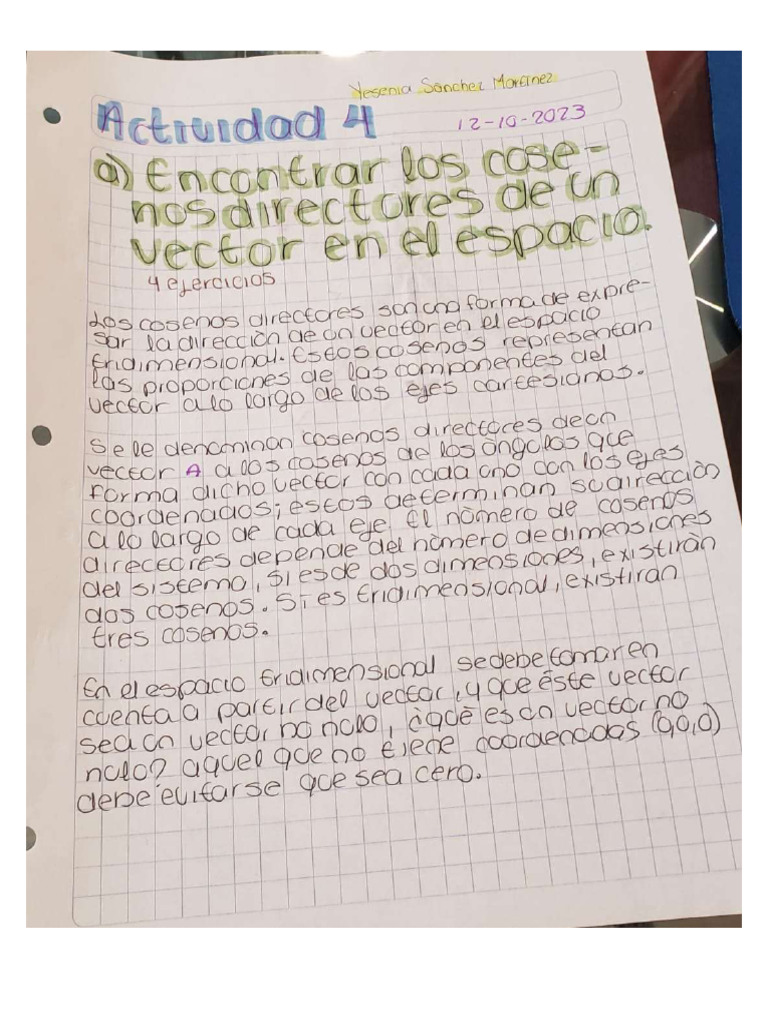 Yesenia Sánchez Martínez
Actividad 4
12-10-2023
a) Encontrar los cose-
nos directores de un
vector en el espacio.
4 ejercicios
Los cosenos directores son una forma de expre-
sar la dirección de un vector en el espacio
tridimensional. Estos cosenos representan
las proporciones de las componentes del
vector a lo largo de los ejes cartesianos.
Se le denominan cosenos directores de un
vector A a los cosenos de los ángulos que
forma dicho vector con cada uno con los ejes
coordenados; estos determinan su dirección
a lo largo de cada eje. El número de cosenos
directores depende del número de dimensiones
del sistema, si es de dos dimensiones, existirán
dos cosenos. Si es tridimensional, existirán
tres cosenos.
En el espacio tridimensional se debe tomar en
cuenta a partir del vector, y que éste vector
sea un vector no nulo, ¿qué es un vector no
nulo? aquel que no tiene coordenadas (0,0,0)
debe evitarse que sea cero.